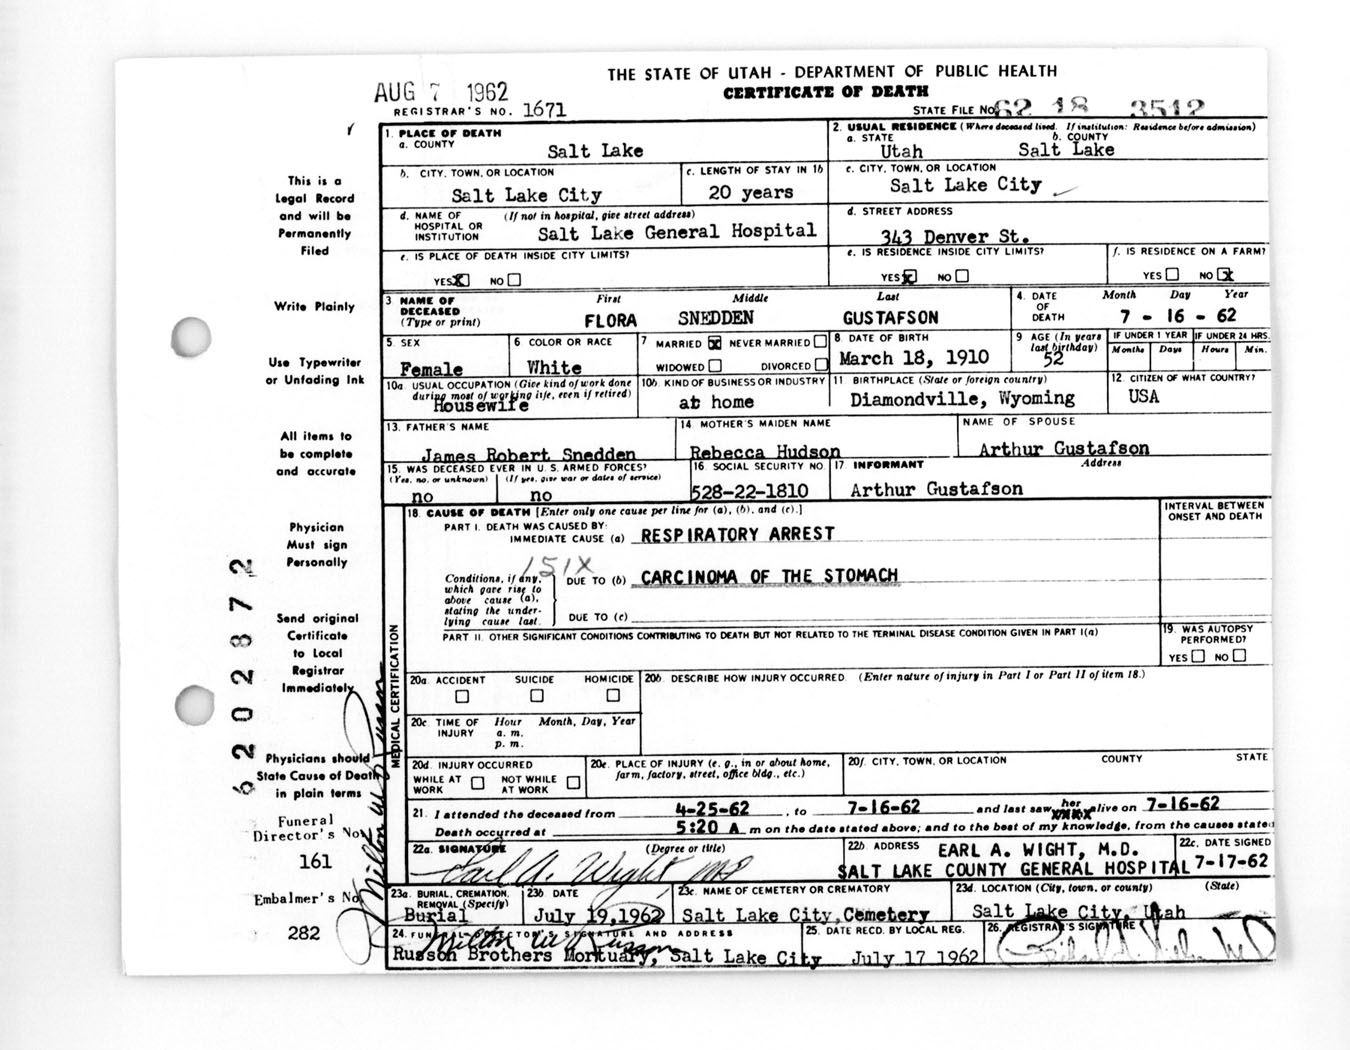 THE STATE OF UTAH - DEPARTMENT OF PUBLIC HEALTH
CERTIFICATE OF DEATH
AUG 7 1962
REGISTRAR'S NO. 1671
STATE FILE NO. 62 18 3512
This is a
Legal Record
and will be
Permanently
Filed
Write Plainly
Use Typewriter
or Unfading Ink
All items to
be complete
and accurate
Physician
Must sign
Personally
Send original
Certificate
to Local
Registrar
Immediately
Physicians should
State Cause of Death
in plain terms
Funeral
Director's No.
161
Embalmer's No.
282
6202872
Milton W Russon
1. PLACE OF DEATH
a. COUNTY
Salt Lake
2. USUAL RESIDENCE (Where deceased lived. If institution: Residence before admission)
a. STATE b. COUNTY
Utah Salt Lake
b. CITY, TOWN, OR LOCATION
Salt Lake City
c. LENGTH OF STAY IN 1b
20 years
c. CITY, TOWN, OR LOCATION
Salt Lake City
d. NAME OF (If not in hospital, give street address)
HOSPITAL OR
INSTITUTION Salt Lake General Hospital
d. STREET ADDRESS
343 Denver St.
e. IS PLACE OF DEATH INSIDE CITY LIMITS?
YES X NO
e. IS RESIDENCE INSIDE CITY LIMITS?
YES X NO
f. IS RESIDENCE ON A FARM?
YES NO X
3 NAME OF First Middle Last
DECEASED
(Type or print) FLORA SNEDDEN GUSTAFSON
4. DATE Month Day Year
OF
DEATH 7 - 16 - 62
5. SEX
Female
6 COLOR OR RACE
White
7 MARRIED X NEVER MARRIED
WIDOWED DIVORCED
8 DATE OF BIRTH
March 18, 1910
9 AGE (In years
last birthday)
52
IF UNDER 1 YEAR IF UNDER 24 HRS.
Months Days Hours Min.
10a. USUAL OCCUPATION (Give kind of work done
during most of working life, even if retired)
Housewife
10b. KIND OF BUSINESS OR INDUSTRY
at home
11 BIRTHPLACE (State or foreign country)
Diamondville, Wyoming
12. CITIZEN OF WHAT COUNTRY?
USA
13. FATHER'S NAME
James Robert Snedden
14 MOTHER'S MAIDEN NAME
Rebecca Hudson
NAME OF SPOUSE
Arthur Gustafson
15. WAS DECEASED EVER IN U. S. ARMED FORCES?
(Yes, no, or unknown) (If yes, give war or dates of service)
no no
16. SOCIAL SECURITY NO.
528-22-1810
17 INFORMANT Address
Arthur Gustafson
MEDICAL CERTIFICATION
18. CAUSE OF DEATH [Enter only one cause per line for (a), (b), and (c).]
INTERVAL BETWEEN
ONSET AND DEATH
PART I. DEATH WAS CAUSED BY:
IMMEDIATE CAUSE (a) RESPIRATORY ARREST
151X
Conditions, if any,
which gave rise to
above cause (a),
stating the under-
lying cause last.
DUE TO (b) CARCINOMA OF THE STOMACH
DUE TO (c)
PART II. OTHER SIGNIFICANT CONDITIONS CONTRIBUTING TO DEATH BUT NOT RELATED TO THE TERMINAL DISEASE CONDITION GIVEN IN PART I(a)
19. WAS AUTOPSY
PERFORMED?
YES NO
20a. ACCIDENT SUICIDE HOMICIDE
20b. DESCRIBE HOW INJURY OCCURRED. (Enter nature of injury in Part I or Part II of item 18.)
20c. TIME OF Hour Month, Day, Year
INJURY a. m.
p. m.
20d. INJURY OCCURRED
WHILE AT NOT WHILE
WORK AT WORK
20e. PLACE OF INJURY (e. g., in or about home,
farm, factory, street, office bldg., etc.)
20f. CITY, TOWN, OR LOCATION COUNTY STATE
21. I attended the deceased from 4-25-62, to 7-16-62 and last saw her alive on 7-16-62
Death occurred at 5:20 A m on the date stated above; and to the best of my knowledge, from the causes stated
22a. SIGNATURE (Degree or title)
Earl A. Wight MD
22b ADDRESS EARL A. WIGHT, M.D.
SALT LAKE COUNTY GENERAL HOSPITAL
22c. DATE SIGNED
7-17-62
23a. BURIAL, CREMATION,
REMOVAL (Specify)
Burial
23b DATE
July 19, 1962
23c. NAME OF CEMETERY OR CREMATORY
Salt Lake City, Cemetery
23d. LOCATION (City, town, or county) (State)
Salt Lake City, Utah
24. FUNERAL DIRECTOR'S SIGNATURE AND ADDRESS
Milton W Russon
Russon Brothers Mortuary, Salt Lake City
25. DATE RECD. BY LOCAL REG.
July 17 1962
26. REGISTRAR'S SIGNATURE